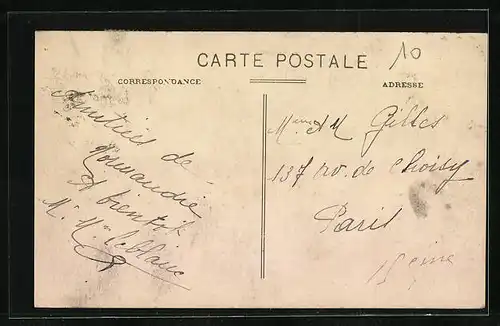 CARTE POSTALE
10
CORRESPONDANCE
ADRESSE
Amitiés de
Normandie
A bientôt
M. Mme Leblanc
Gilles
137 av. de Choisy
Paris
Seine